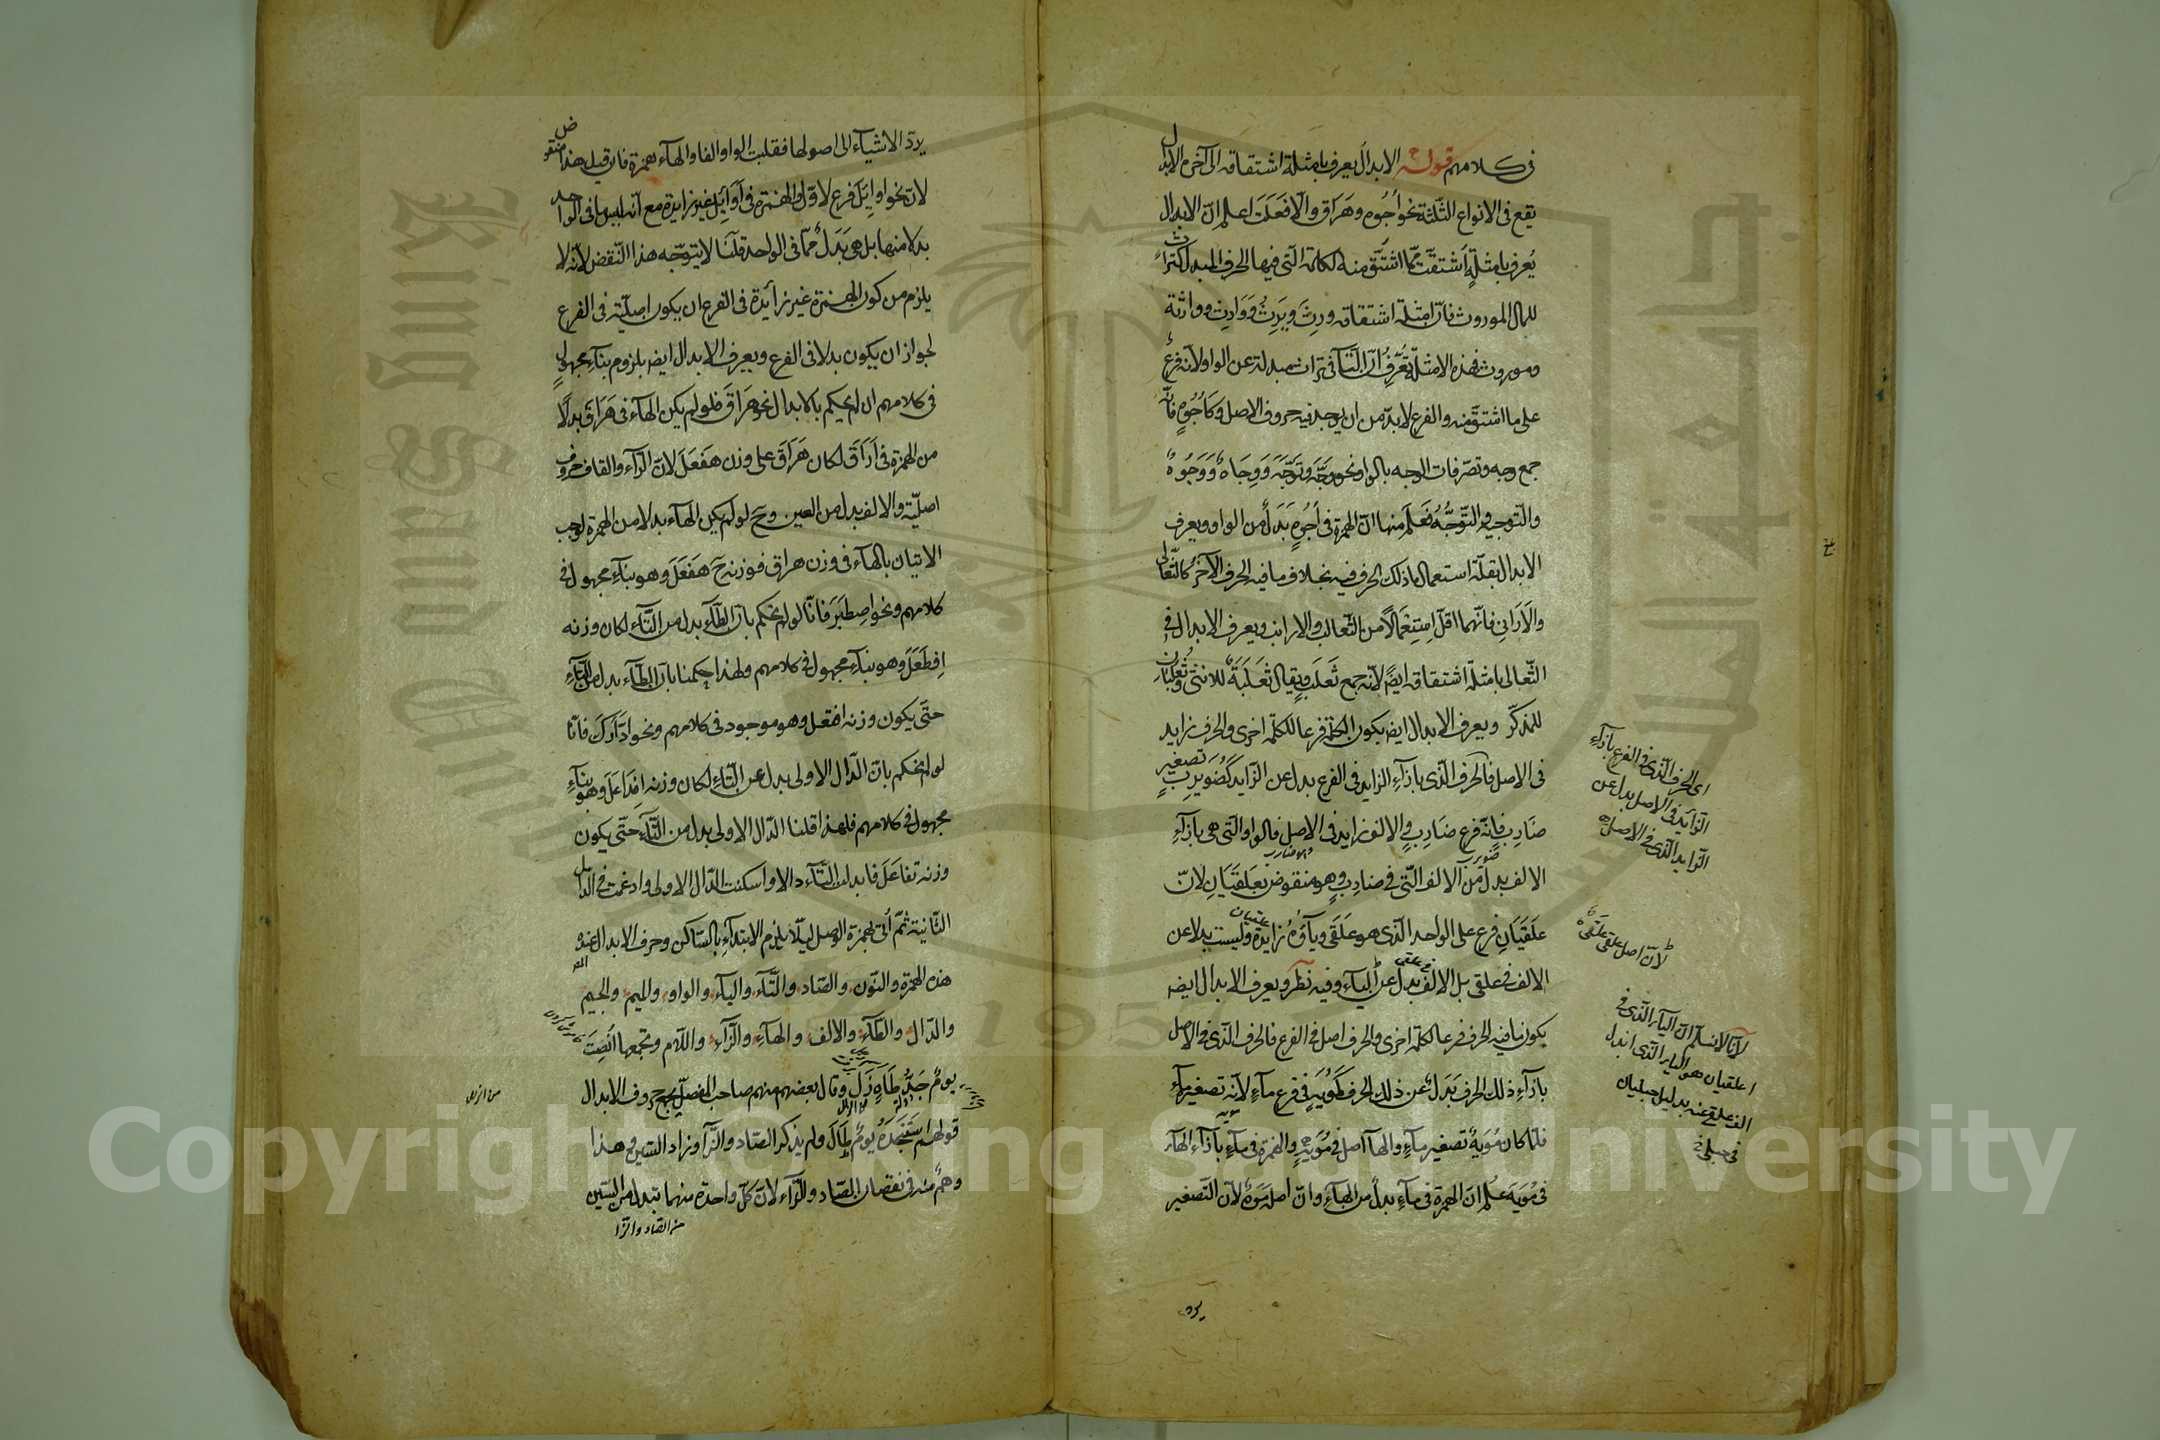 فى كلامهم قوله الابدال يعرف بامثلة اشتقاقه الى آخره الابدال
يقع فى الانواع الثلثة نحو أجُوه وهَرَاق والّا فعلت اعلم انّ الابدال
يُعرف بامثلةٍ اشتقّت ممّا اشتقّ منه الكلمة التى فيها الحرف المبدل كتراث
للمال الموروث فانّ امثلة اشتقاقه ورِثَ ويَرِثُ ووَارِث ووراثة
وموروث فهذه الامثلة تُعرّف انّ التّاء فى تراث مبدلة عن الواو لانّه فرع
على ما اشتقّ منه والفرع لابدّ من ان يوجد فيه حروف الاصل وكَأُجُوهٍ فانّه
جمع وجه وتصرّفات الوجه بالواو نحو وجّه وتوجّه ووِجَاهٌ ووُجُوهٌ
والتّوجيه والتّوجُّه فعلم منها انّ الهمزة فى أجُوهٍ بَدَلٌ من الواو ويعرف
الابدال بقلّة استعمال ما ذلك الحرف فيه بخلاف ما فيه الحرف الآخر كالثّعالى
والاَرَانى فانّهما اقلّ اِستِعمَالًا من الثّعالب والارانب ويعرف الابدال فى
الثّعالى بامثلة اشتقاقه ايضًا لانّه جمع ثَعلَبٍ ويقال ثعلبَةٌ للانثى وثُعلُبان
للمذكّر ويعرف الابدال ايضا بكون الكلمة فرعا لكلمة اخرى والحرف زايد
فى الاصل فالحرف الّذى بازآءِ الزايد فى الفرع بدل عن الزّايد كضُوَيرِبٍ تصغير
ضَارِبٍ فانّه فرع ضَارِبٍ والالف زايد فى الاصل فالواو الّتى هى بازآءِ
الالف بدل من الالف الّتى فى ضارِبٍ وهو منقوض بعَلقَيَانِ لانّ
علقَيَانِ فرع على الواحد الّذى هو علقَى وياؤُهُ زايدة وليست بدلا عن
الالف فى علقى بل الالف بدل عن الياء وفيه نظر ويعرف الابدال ايضا
بكون ما فيه الحرف فرعا لكلمة اخرى والحرف اصل فى الفرع فالحرف الّذى فى الاصل
بازآءِ ذلك الحرف بَدَلٌ عن ذلك الحرف كمُوَيهٍ فى فرع مآءٍ لانّه تصغير مآءٍ
فلمّا كان مُوَيهٌ تصغير مآءٍ والهآ اصل فى مُوَيهٍ والهمزة فى مآءٍ بازآء الهآء
فى مُوَيهَ عُلم انّ الهمزة فى مآءٍ بدل من الهآءِ وانّ اصله مَوَهٌ لانّ التّصغير
اى الحرف الّذى فى الفرع بازآءِ
الزّايد فى الاصل بدل عن
الزّايد الّذى فى الاصل
لانّ اصل علقى علقىٌ
لانّا لا نسلّم انّ اليآء الّذى فى
علقيان هو اليآء الّذى ابدل
الف علقى عنه بدليل حبليان
فى حبلى
يردّ
يردّ الاشيآء الى اصولها فقلبت الواو الفا والهآء همزة فان قيل هذا منقوض
لانّ نحو اوايل فرع لاوّل والهمزة فى أَوَائِل غير زايدة مع انّه ليس ما فى الواحد
بدلا منها بل هى بَدَلٌ ممّا فى الواحد قلنا لا يتوجّه هذا النّقض لانّه لا
يلزم من كون الهمزة غير زائدة فى الفرع ان يكون اصليّة فى الفرع
لجواز ان يكون بدلا فى الفرع ويعرف الابدال ايضا بلزوم بناءٍ مجهولٍ
فى كلامهم ان لم يحكم بالابدال نحو هَرَاقَ فلو لم يكن الهآء فى هَرَاقَ بدلًا
من الهمزة فى اَرَاقَ لكان هَرَاقَ على وزن هَفعَلَ لانّ الرّآء والقاف حروف
اصليّة والالف بدل من العين وح لو لم يكن الهآء بدلا من الهمزة لوجب
الاتيان بالهآء فى وزن هراق فوزنه ح هَفعَلَ وهو بنآء مجهول فى
كلامهم ونحو اصِطَبَرَ فانّا لو لم نحكم بانّ الطّآء بدل من التّآء لكان وزنه
اِفطَعَلَ وهو بنآء مجهول فى كلامهم ولهذا حكمنا بانّ الطّآء بدل من التّآءِ
حتّى يكون وزنه افتعل وهو موجود فى كلامهم ونحو ادّارَكَ فانّا
لو لم نحكم بانّ الدّال الاولى بدل عن التّاءِ لكان وزنه اِفّدَاعَلَ وهو بنآء
مجهول فى كلامهم فلهذا قلنا الدّال الاولى بدل من التّاءِ حتّى يكون
وزنه تفاعَلَ فابدلت التّآء دالا واسكنت الدّال الاولى وادغمت فى الدّال
الثّانية ثمّ أتى بهمزة الوصل ليلّا يلزم الابتدآءِ بالسّاكن وحرف الابدال عنده
هذه الهمزة والنّون والصّاد والتّاء واليآء والواو والميم والجيم
والدّال والطّاء والالف والهآءِ والزّآء واللّام وتجمعها انصت
يوم جدّ طاه زلّ وقال بعضهم منهم صاحب المفصّل يجمع حروف الابدال
قولهم استَنجَدَهُ يومٌ طالَ ولم يذكر الصّاد والزّا وزاد السّين وهذا
وهمٌ منه فى نقصان الصّاد والزّآء لانّ كلّ واحدة منهما تبدل من السّين
من الصّاد والزّا